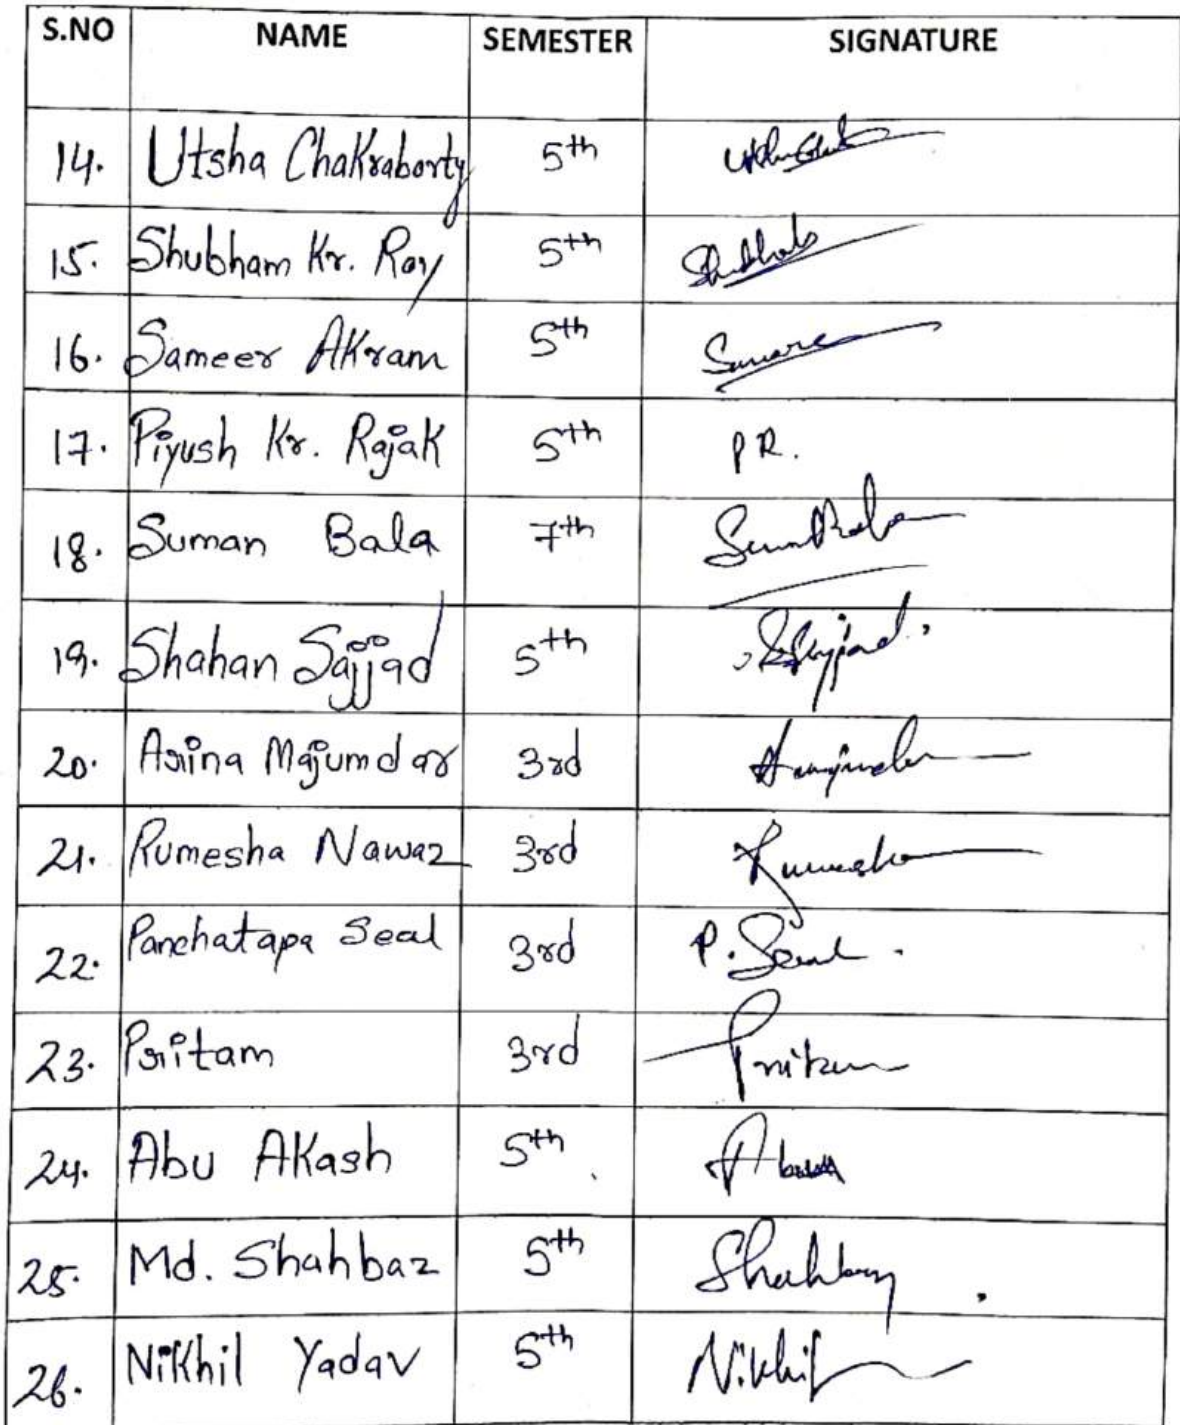 S.NO NAME SEMESTER SIGNATURE
14. Utsha Chakraborty 5th
15. Shubham Kr. Roy 5th
16. Sameer Akram 5th
17. Piyush Kr. Rajak 5th P R.
18. Suman Bala 7th
19. Shahan Sajjad 5th
20. Arina Majumdar 3rd
21. Rumesha Nawaz 3rd
22. Panchatapa Seal 3rd P. Seal.
23. Pritam 3rd
24. Abu Akash 5th
25. Md. Shahbaz 5th
26. Nikhil Yadav 5th Nikhil